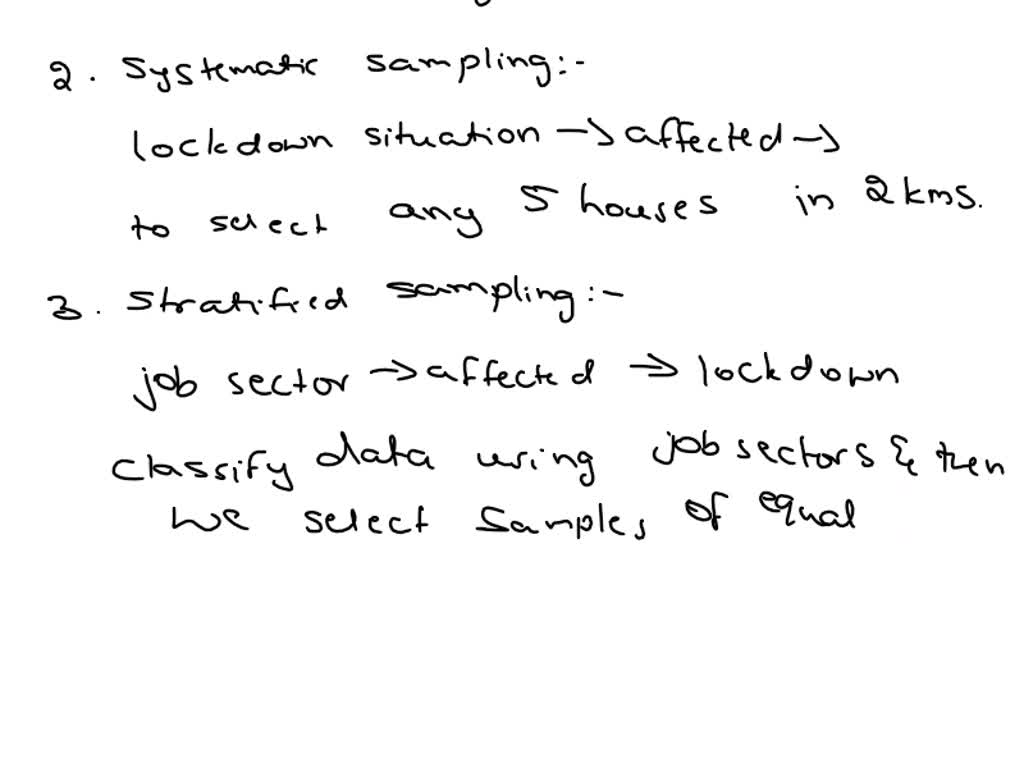 2. Systematic sampling:-
lockdown situation → affected →
to select any 5 houses in 2 kms.
3. Stratified sampling:-
job sector → affected → lockdown
classify data using job sectors & then
we select samples of equal